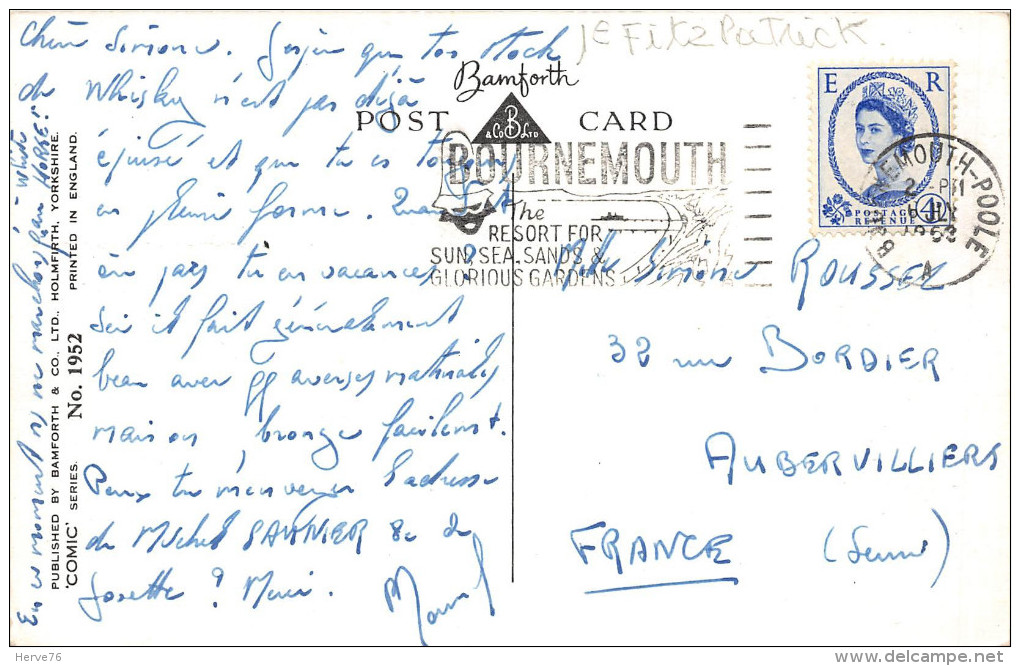 Chère Simone. J'espère que ton stock
de Whisky n'est pas déjà
épuisé et que tu es toujours
en pleine forme. Quand
en vacances ?
Ici il fait généralement
beau avec qq averses matinales
mais on bronze facilement.
Peux tu m'envoyer l'adresse
de Michel SAUNIER & de
Josette ? Merci.
En ce moment ns ne marchons qu'au "White HORSE".
Je FitzPatrick.
Bamforth
POST CARD
B & Co LTD
BOURNEMOUTH
The
RESORT FOR
SUN, SEA, SANDS &
GLORIOUS GARDENS
E R
POSTAGE
REVENUE
4D
BOURNEMOUTH-POOLE
2 - PM
A
Mlle Simone ROUSSEL
32 rue BORDIER
AUBERVILLIERS
FRANCE (Seine)
PUBLISHED BY BAMFORTH & CO., LTD., HOLMFIRTH, YORKSHIRE.
'COMIC' SERIES. No. 1952 PRINTED IN ENGLAND.
Herve76
delcampe.net